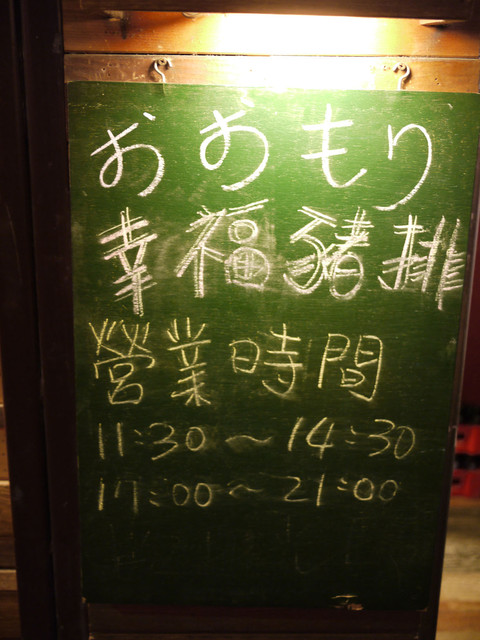 おおもり
幸福豬排
營業時間
11:30～14:30
17:00～21:00